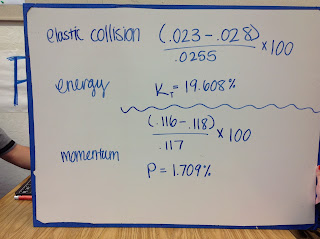 elastic collision (.023 - .028) × 100
.0255
energy K_T = 19.608%
(.116 - .118) × 100
.117
momentum
P = 1.709%